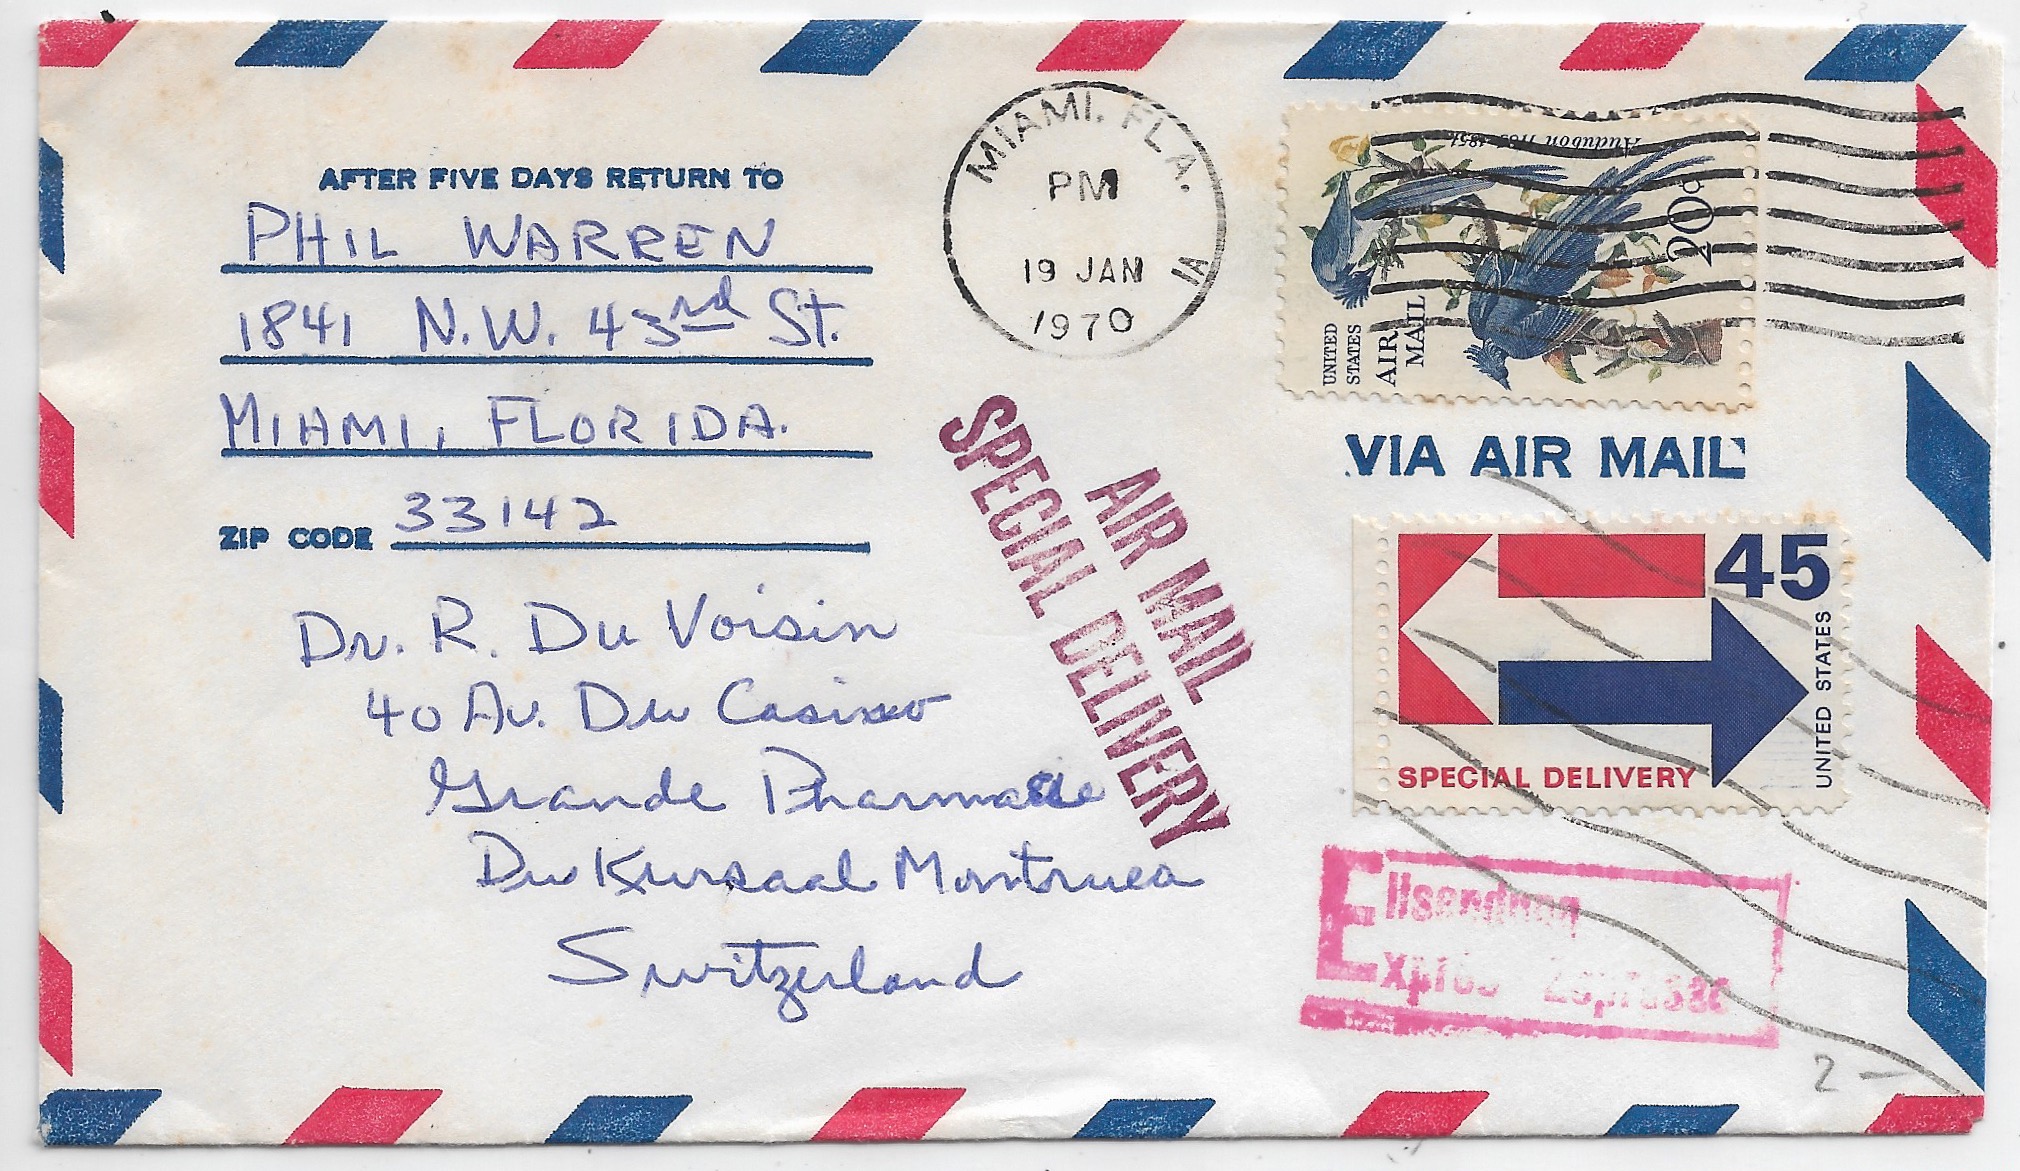 AFTER FIVE DAYS RETURN TO
PHIL WARREN
1841 N.W. 43rd St.
MIAMI, FLORIDA.
ZIP CODE 33142
MIAMI, FLA.
PM
19 JAN
1970
1A
Audubon 1785-1851
20c
UNITED
STATES
AIR
MAIL
VIA AIR MAIL
45
UNITED STATES
SPECIAL DELIVERY
AIR MAIL
SPECIAL DELIVERY
Dr. R. Du Voisin
40 Av. Du Casino
Grande Pharmacie
Du Kursaal Montruea
Switzerland
Eilsendung
Exprès Espresso
2 –